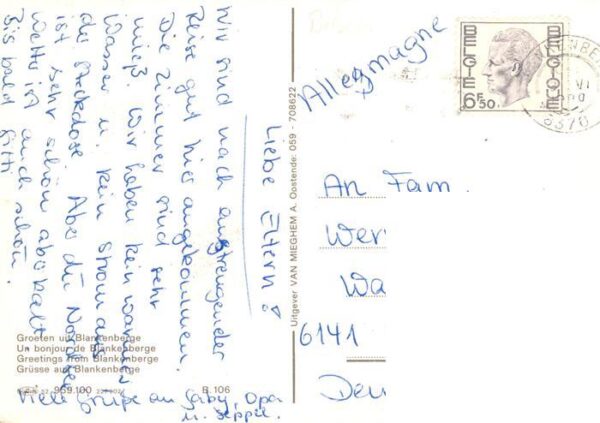 Liebe Eltern!
Wir sind nach anstrengender
Reise gut hier angekommen.
Die Zimmer sind sehr
mieß. Wir haben kein warmes
Wasser u. kein Strom aus
der Steckdose. Aber die Nordsee
ist sehr schön aber kalt
Wetter ist auch schön.
Bis bald
Gitti
Viele Grüße an Gaby, Opa
u. Seppel.
Groeten uit Blankenberge
Un bonjour de Blankenberge
Greetings from Blankenberge
Grüsse aus Blankenberge
959.100
B. 106
Uitgever VAN MIEGHEM A. Oostende: 059 - 708622
Allegmagne
BELGIE
BELGIQUE
6F50
An Fam.
Wer
Wa
6141
Deu